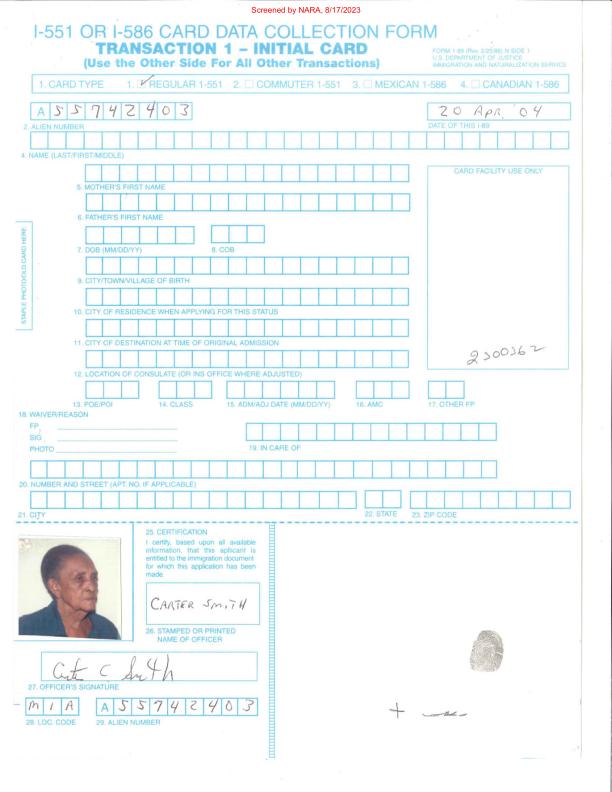 Screened by NARA, 8/17/2023
I-551 OR I-586 CARD DATA COLLECTION FORM
TRANSACTION 1 – INITIAL CARD
(Use the Other Side For All Other Transactions)
FORM I-89 (Rev. 2/25/88) N SIDE 1
U.S. DEPARTMENT OF JUSTICE
IMMIGRATION AND NATURALIZATION SERVICE
1. CARD TYPE 1. ☑ REGULAR 1-551 2. ☐ COMMUTER 1-551 3. ☐ MEXICAN 1-586 4. ☐ CANADIAN 1-586
A 5 5 7 4 2 4 0 3
20 Apr. '04
2. ALIEN NUMBER
DATE OF THIS I-89
4. NAME (LAST/FIRST/MIDDLE)
CARD FACILITY USE ONLY
5. MOTHER'S FIRST NAME
6. FATHER'S FIRST NAME
7. DOB (MM/DD/YY) 8. COB
STAPLE PHOTO/OLD CARD HERE
9. CITY/TOWN/VILLAGE OF BIRTH
10. CITY OF RESIDENCE WHEN APPLYING FOR THIS STATUS
11. CITY OF DESTINATION AT TIME OF ORIGINAL ADMISSION
2300362
12. LOCATION OF CONSULATE (OR INS OFFICE WHERE ADJUSTED)
13. POE/POI 14. CLASS 15. ADM/ADJ DATE (MM/DD/YY) 16. AMC 17. OTHER FP
18. WAIVER/REASON
FP
SIG
PHOTO
19. IN CARE OF
20. NUMBER AND STREET (APT. NO. IF APPLICABLE)
21. CITY 22. STATE 23. ZIP CODE
25. CERTIFICATION
I certify, based upon all available
information, that this aplicant is
entitled to the immigration document
for which this application has been
made.
CARTER SMITH
26. STAMPED OR PRINTED
NAME OF OFFICER
Carter C Smith
27. OFFICER'S SIGNATURE
M I A A 5 5 7 4 2 4 0 3
28. LOC. CODE 29. ALIEN NUMBER
+